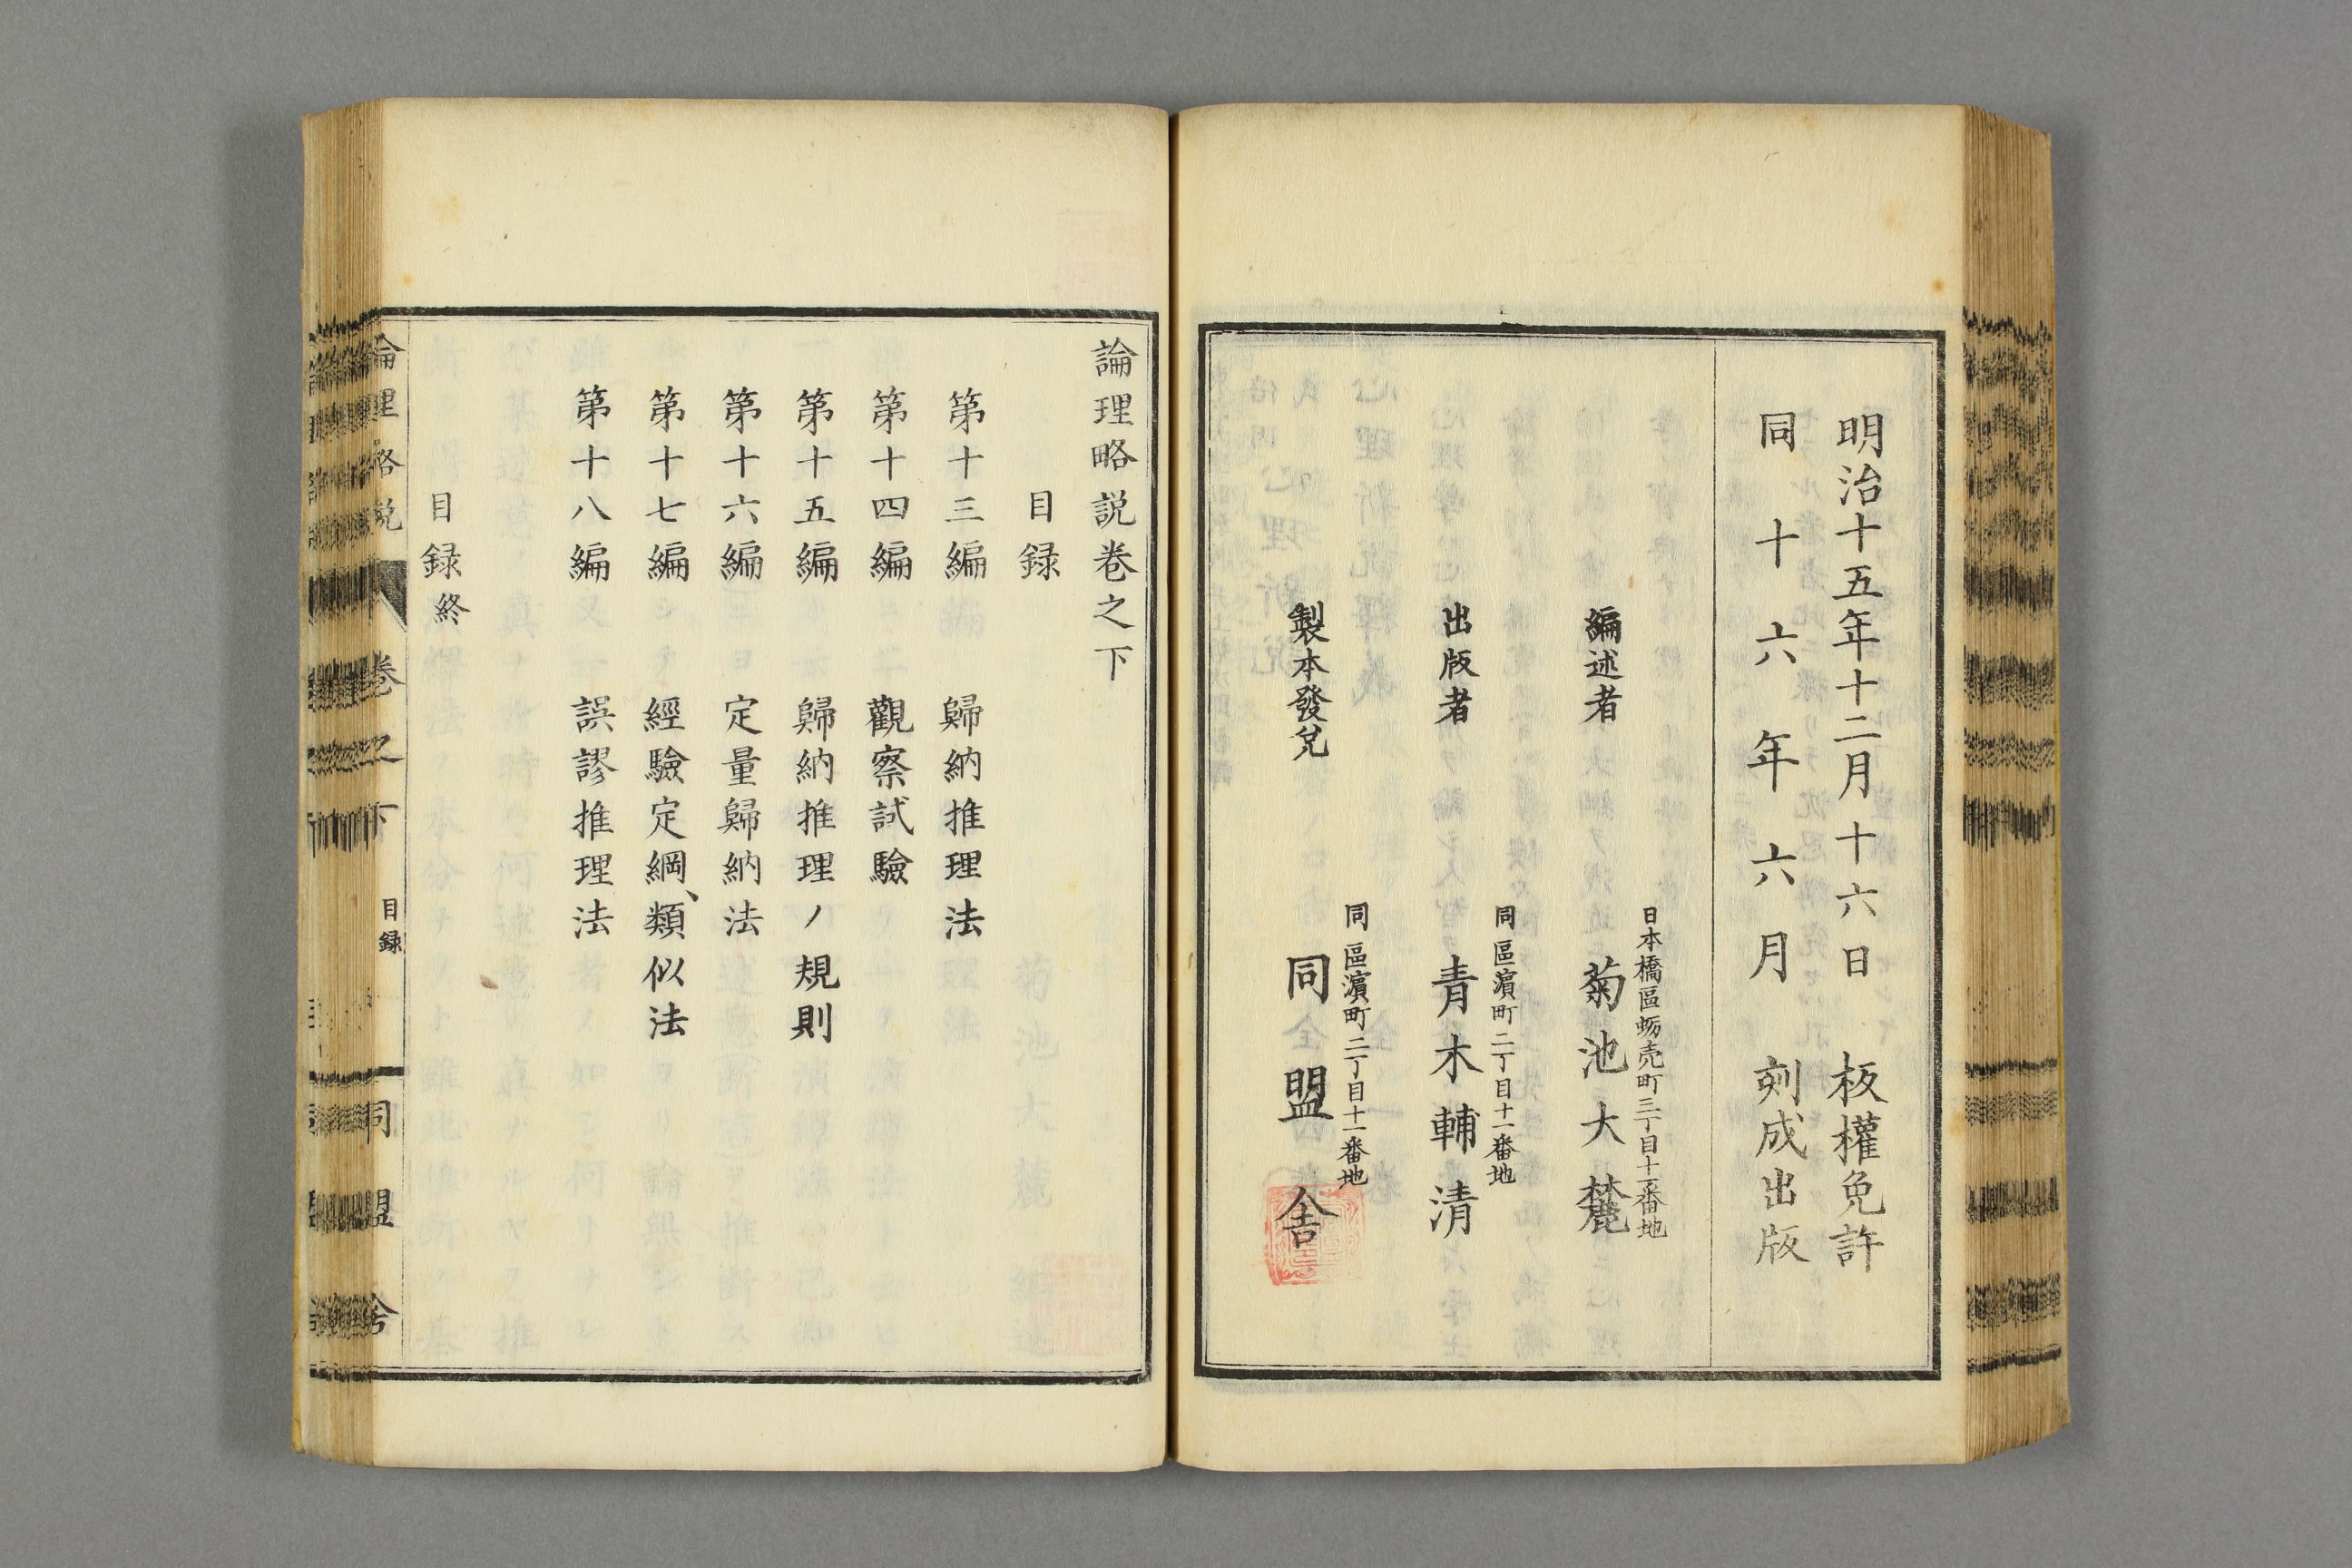 明治十五年十二月十六日 板權免許
同十六年六月 刻成出版
日本橋區蛎売町三丁目十二番地
編述者 菊池大麓
同區濵町二丁目十一番地
出版者 青木輔清
同區濵町二丁目十一番地
製本發兌 同盟舎
論理略説卷之下
目録
第十三編 歸納推理法
第十四編 觀察試驗
第十五編 歸納推理ノ規則
第十六編 定量歸納法
第十七編 經驗定綱、類似法
第十八編 誤謬推理法
目録終
論理略説 卷之下 目録 同盟舎